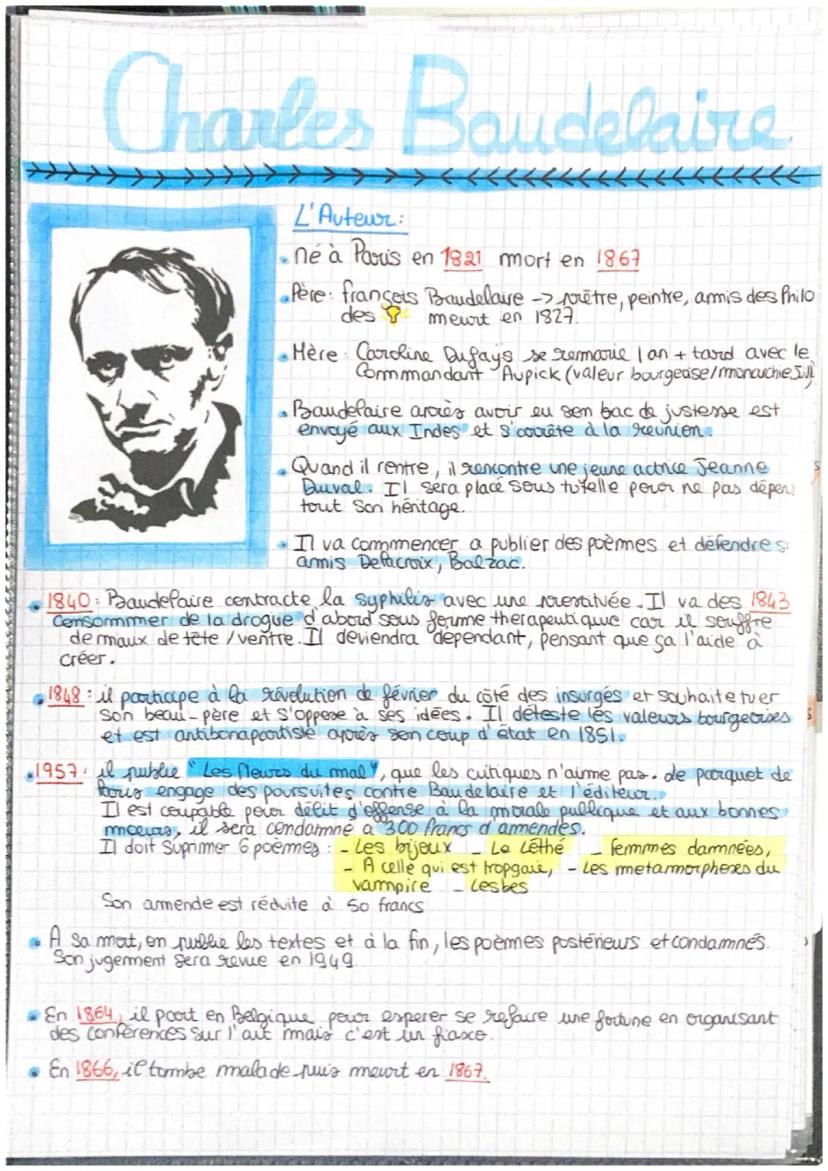 Charles Baudelaire
L'Auteur:
né à Paris en 1821 mort en 1867
Père: françois Baudelaire -> prêtre, peintre, amis des Philo
des meurt en 1827.
Mère: Caroline Dufays se remarie 1 an + tard avec le
Commandant Aupick (valeur bourgeoise/monarchie Juill
Baudelaire après avoir eu son bac de justesse est
envoyé aux Indes et s'arrête à la reunion.
Quand il rentre, il rencontre une jeune actrice Jeanne
Duval. Il sera placé sous tutelle pour ne pas dépen
tout son héritage.
Il va commencer a publier des poèmes et défendre s
amis Delacroix, Balzac.
1840: Baudelaire contracte la syphilis avec une prostituée. Il va des 1843
consommer de la drogue d'abord sous forme therapeutique car il souffre
de maux de tête/ventre. Il deviendra dépendant, pensant que ça l'aide à
créer.
1848: il participe à la révolution de février du côté des insurgés et souhaite tuer
son beau-père et s'oppose à ses idées. Il déteste les valeurs bourgeoises
et est antibonapartiste après son coup d'état en 1851.
1957: il publie "Les fleurs du mal", que les critiques n'aime pas. de parquet de
Paris engage des poursuites contre Baudelaire et l'éditeur.
Il est coupable pour délit d'offense à la morale publique et aux bonnes
moeurs, il sera condamné a 300 francs d'amendes.
Il doit suprimer 6 poèmes: - Les bijoux - Le Léthé - femmes damnées,
- A celle qui est trop gaie, - Les metamorphoses du
vampire - Lesbos
Son amende est réduite à 50 francs
À sa mort, on publie les textes et à la fin, les poèmes postérieurs et condamnés.
Son jugement sera revue en 1949.
En 1864, il part en Belgique pour esperer se refaire une fortune en organisant
des conférences sur l'art mais c'est un fiasco.
En 1866, il tombe malade puis meurt en 1867.